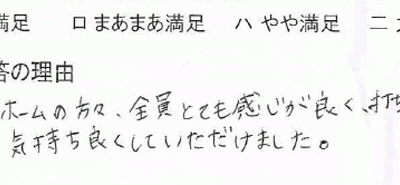 満足 ロ まあまあ満足 ハ やや満足 ニ
答の理由
ホームの方々、全員とても感じが良く、打
気持ち良くしていただけました。